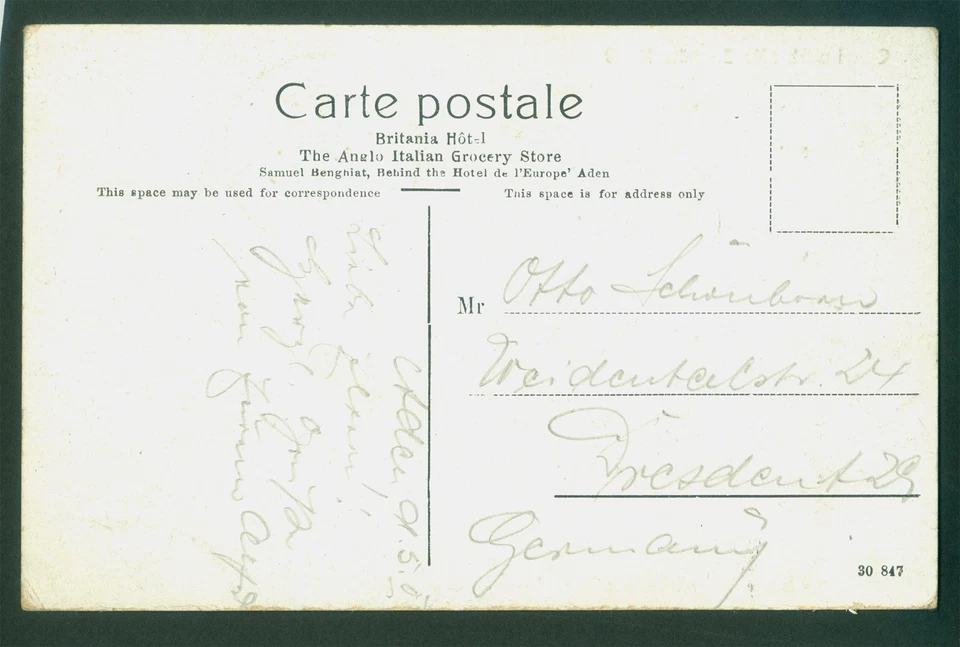 Carte postale
Britania Hôtel
The Anglo Italian Grocery Store
Samuel Benghiat, Behind the Hotel de l'Europe' Aden
This space may be used for correspondence
This space is for address only
Aden
Liebe Eltern!
Herzl. Grüße
von Eurem
Mr Otto Schönborn
Weidentalstr. 24
Dresden A 29
Germany
30 847